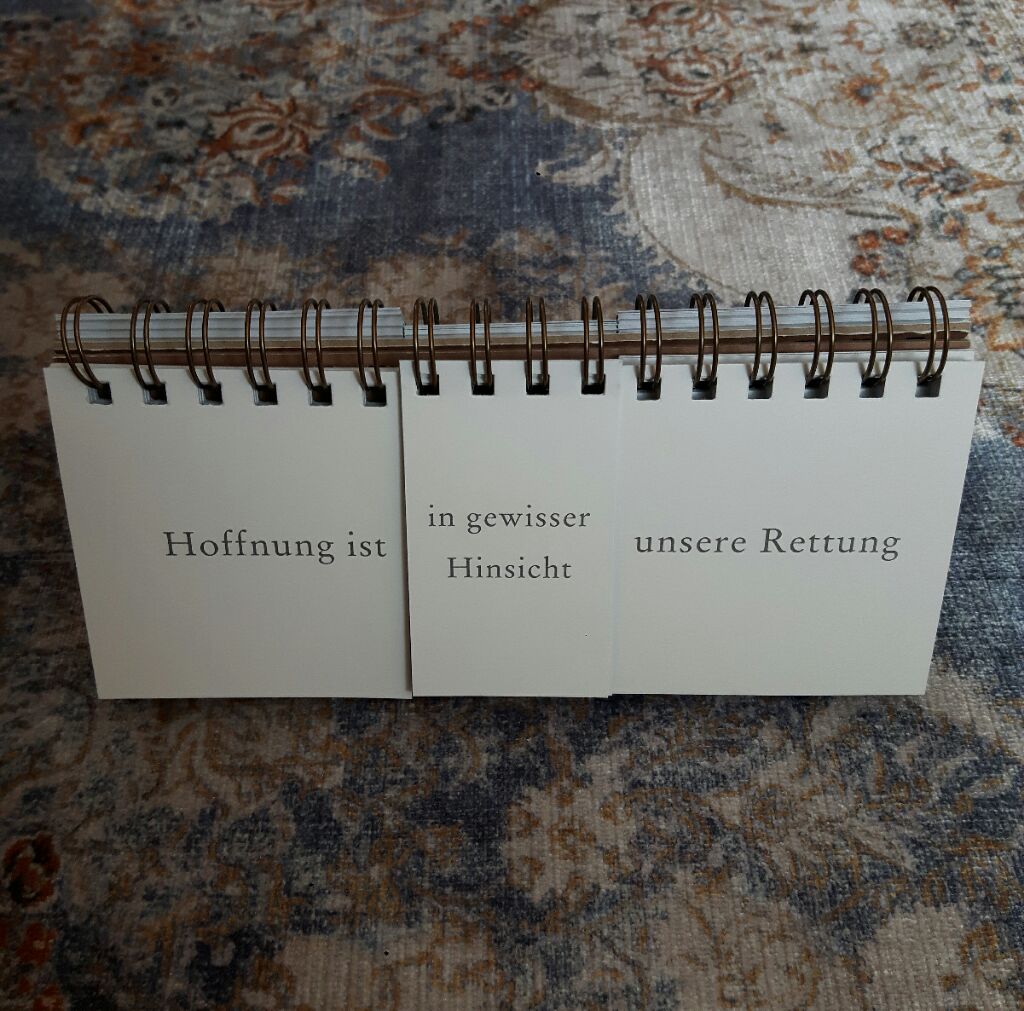 Hoffnung ist
in gewisser
Hinsicht
unsere Rettung